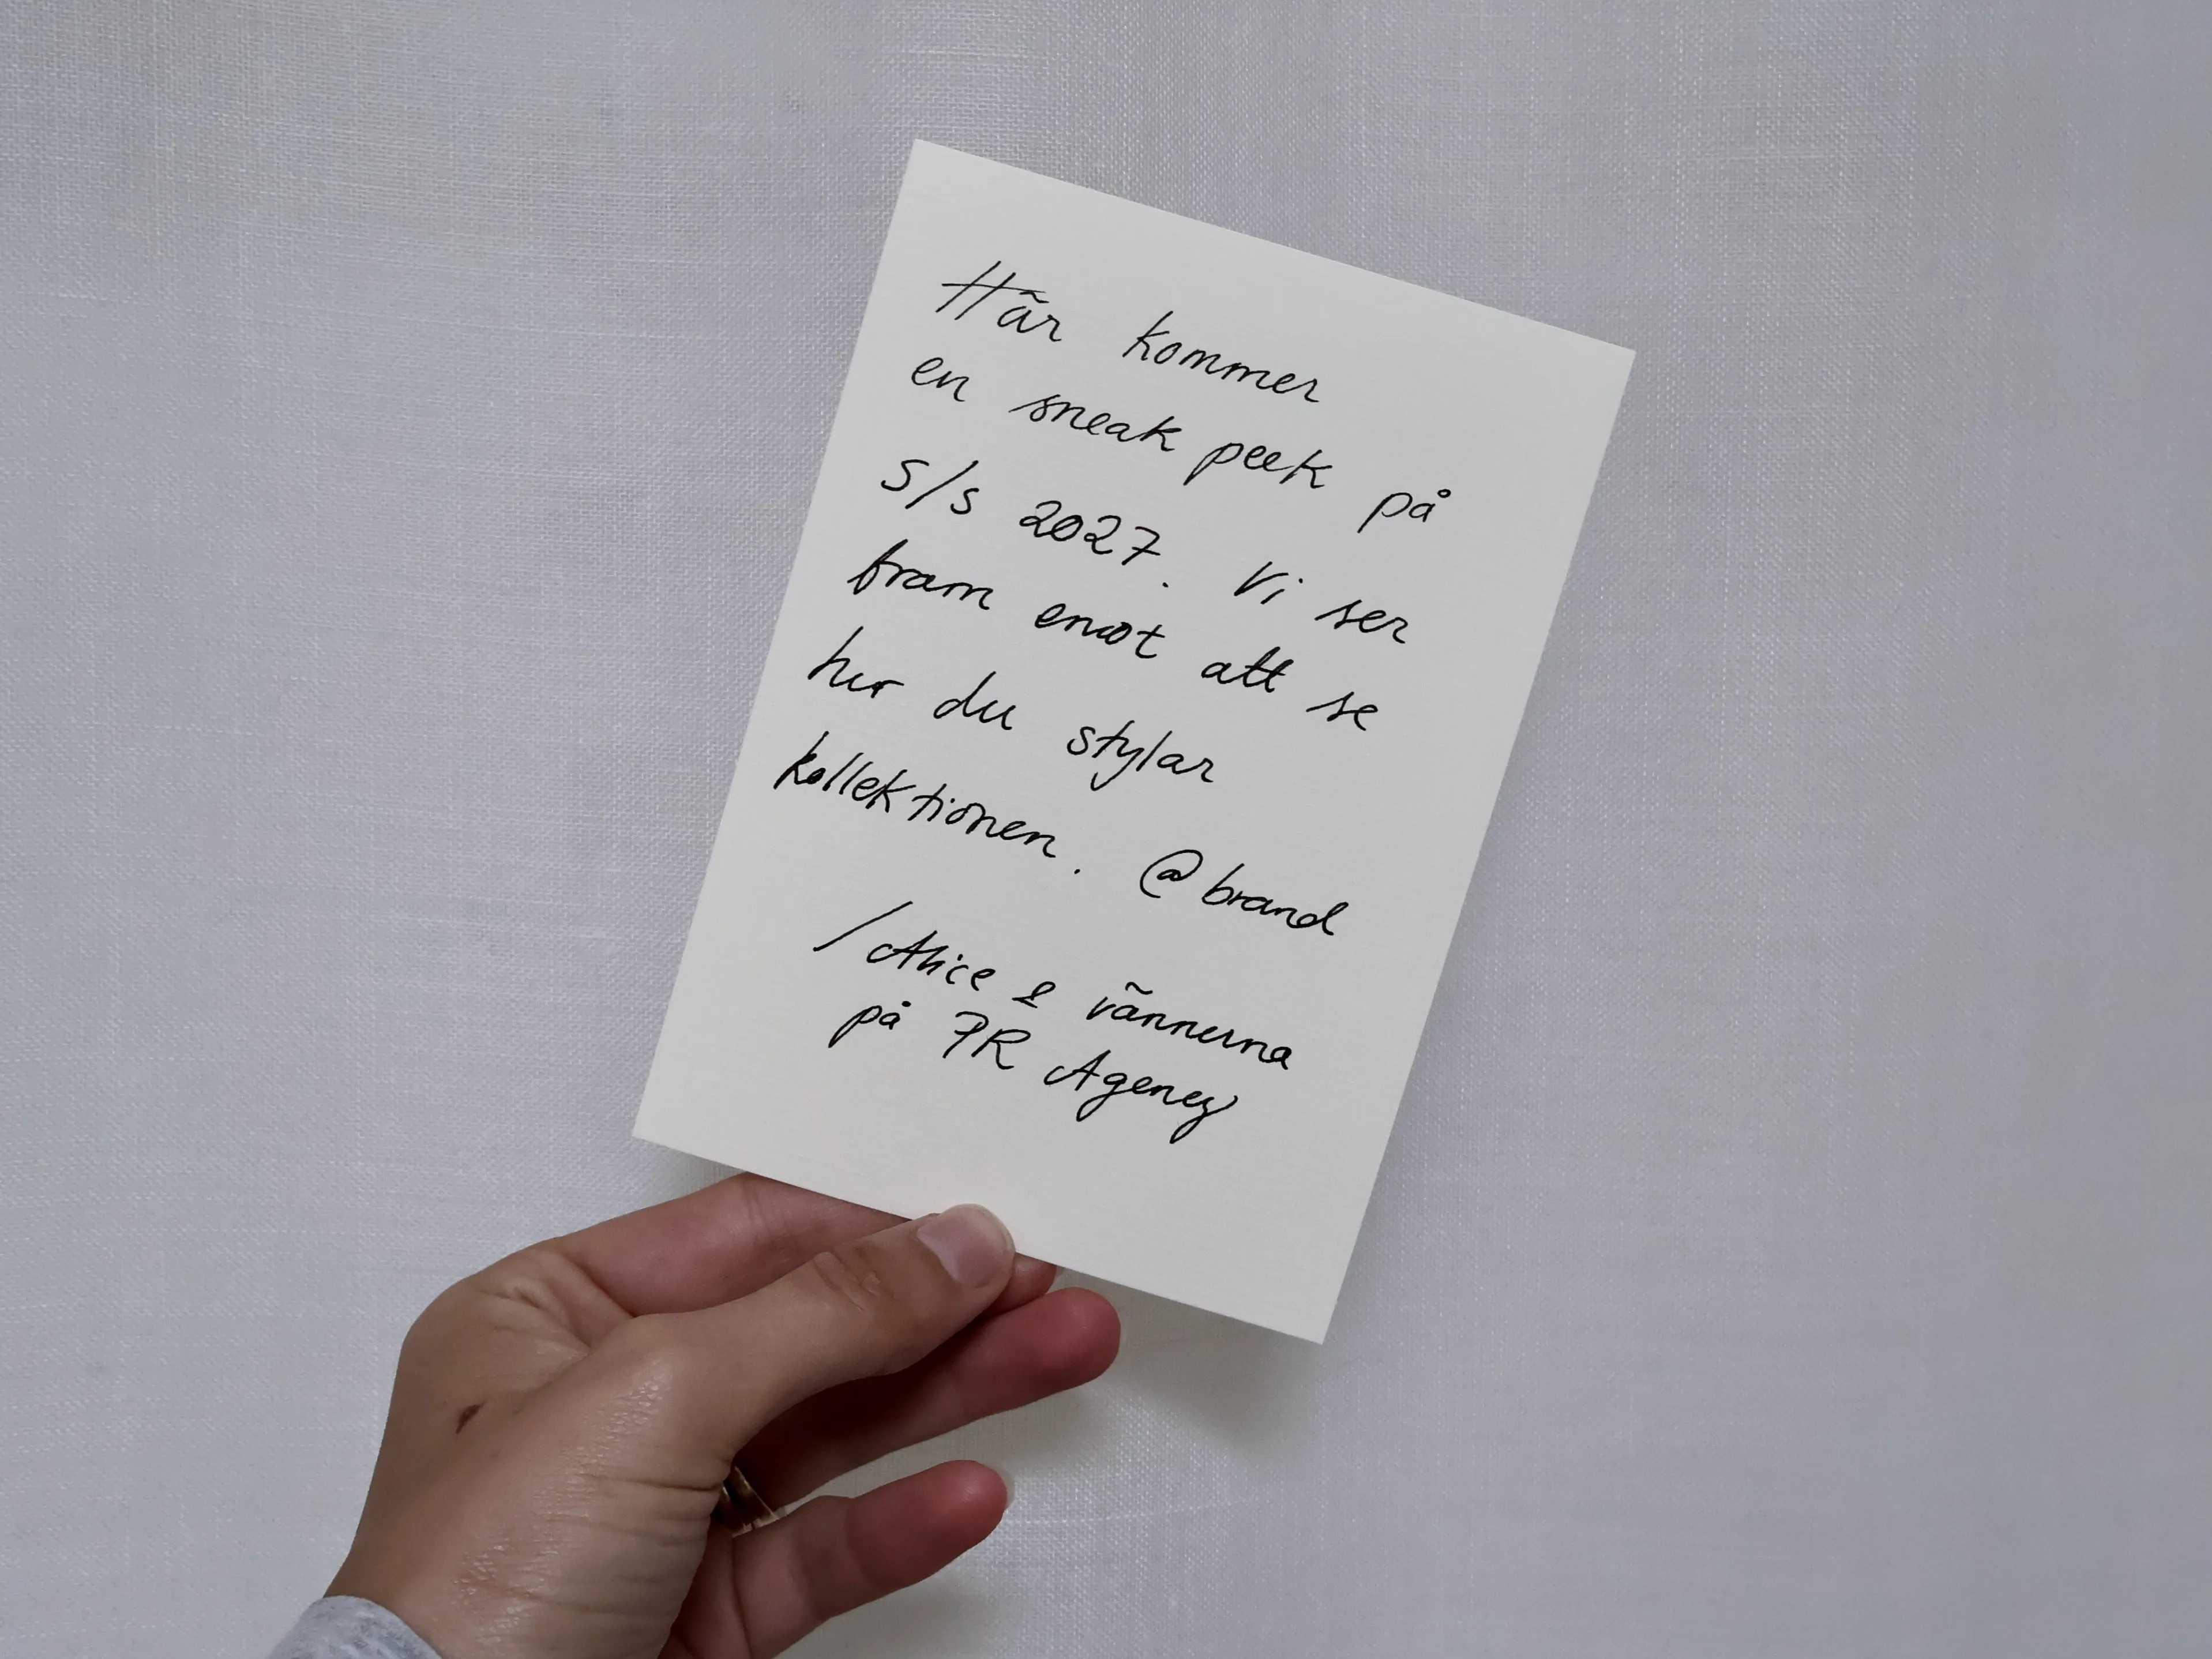 Här kommer
en sneak peek på
S/S 2027. Vi ser
fram emot att se
hur du stylar
kollektionen. @brand
/Alice & vännerna
på PR Agency